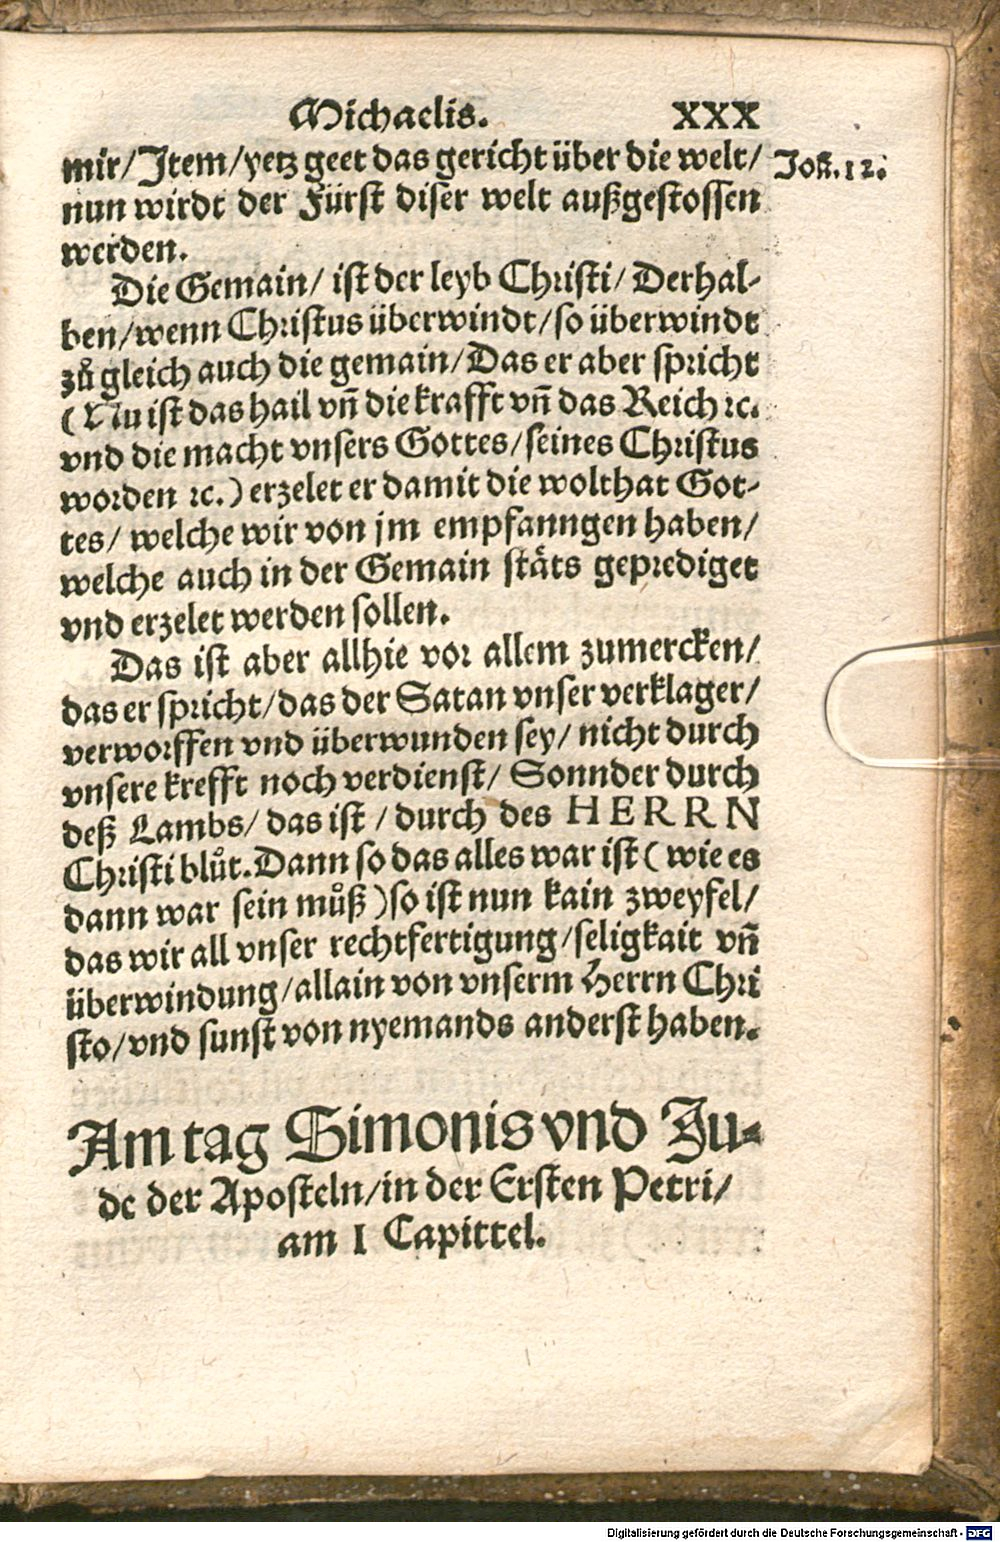 Michaelis. XXX
mir/ Item/ yetz geet das gericht über die welt/ Joh. 12.
nun wirdt der Fürst diser welt außgestossen
werden.
Die Gemain/ ist der leyb Christi/ Derhal-
ben/ wenn Christus überwindt/ so überwindt
zů gleich auch die gemain/ Das er aber spricht
(Nu ist das hail vñ die krafft vñ das Reich ꝛc.
vnd die macht vnsers Gottes/ seines Christus
worden ꝛc.) erzelet er damit die wolthat Got-
tes/ welche wir von jm empfanngen haben/
welche auch in der Gemain stäts geprediget
vnd erzelet werden sollen.
Das ist aber allhie vor allem zumercken/
das er spricht/ das der Satan vnser verklager/
verworffen vnd überwunden sey/ nicht durch
vnsere krefft noch verdienst/ Sonnder durch
deß Lambs/ das ist/ durch des HERRN
Christi blůt. Dann so das alles war ist (wie es
dann war sein můß) so ist nun kain zweyfel/
das wir all vnser rechtfertigung/ seligkait vñ
überwindung/ allain von vnserm Herrn Chri
sto/ vnd sunst von nyemands anderst haben.
Am tag Simonis vnd Ju-
de der Aposteln/ in der Ersten Petri/
am I Capittel.
Digitalisierung gefördert durch die Deutsche Forschungsgemeinschaft - DFG